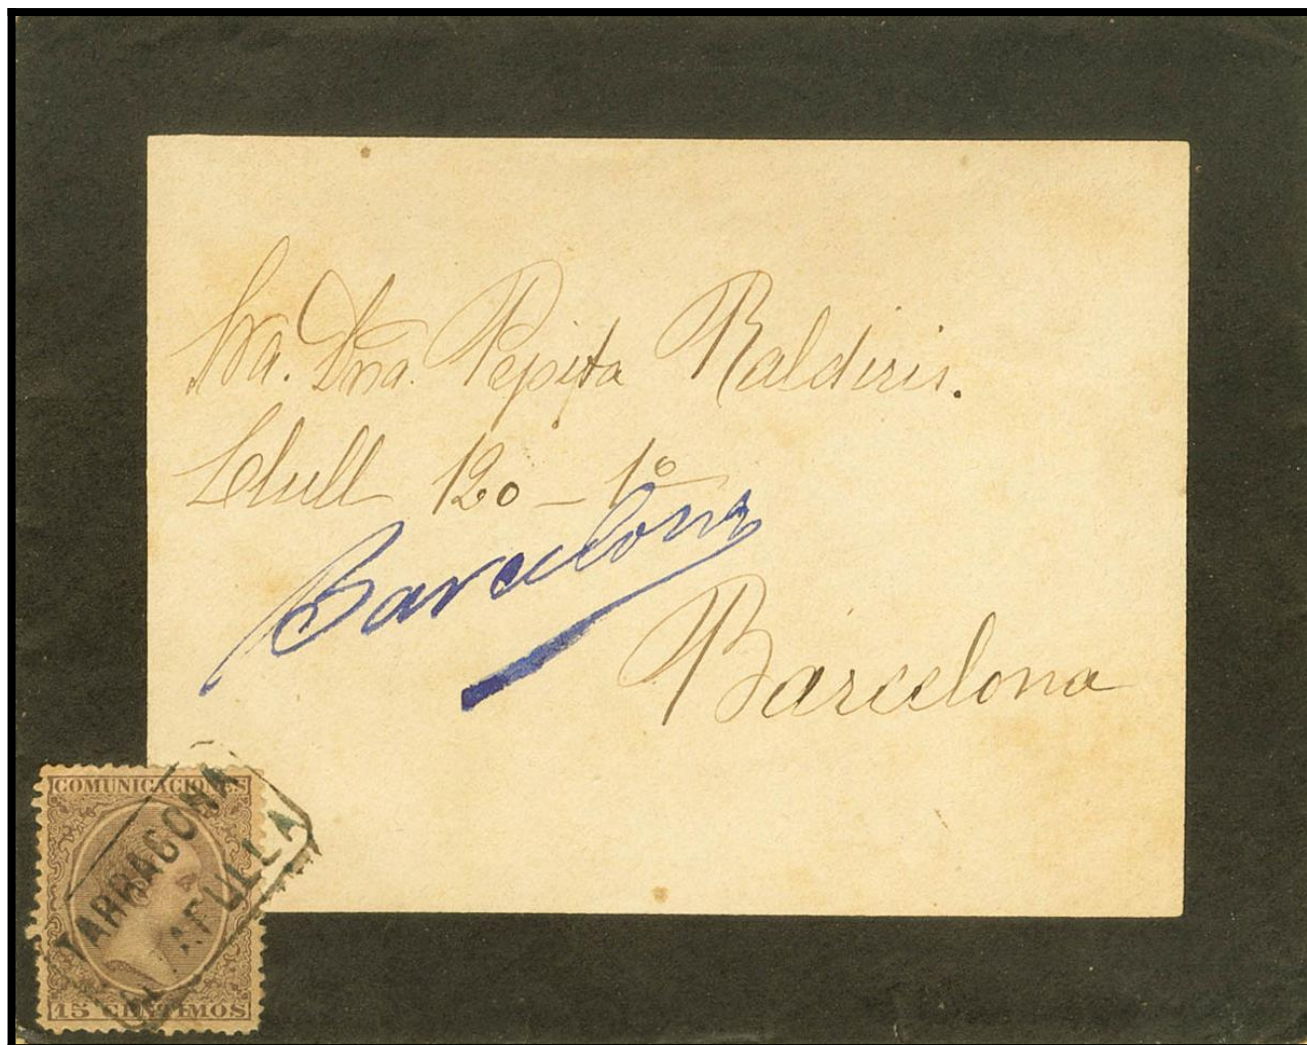 Sra. Dna. Pepita Baldiris.
Lull 120 - 1º
Barcelona
Barcelona
COMUNICACIONES
TARRAGONA
15 CENTIMOS